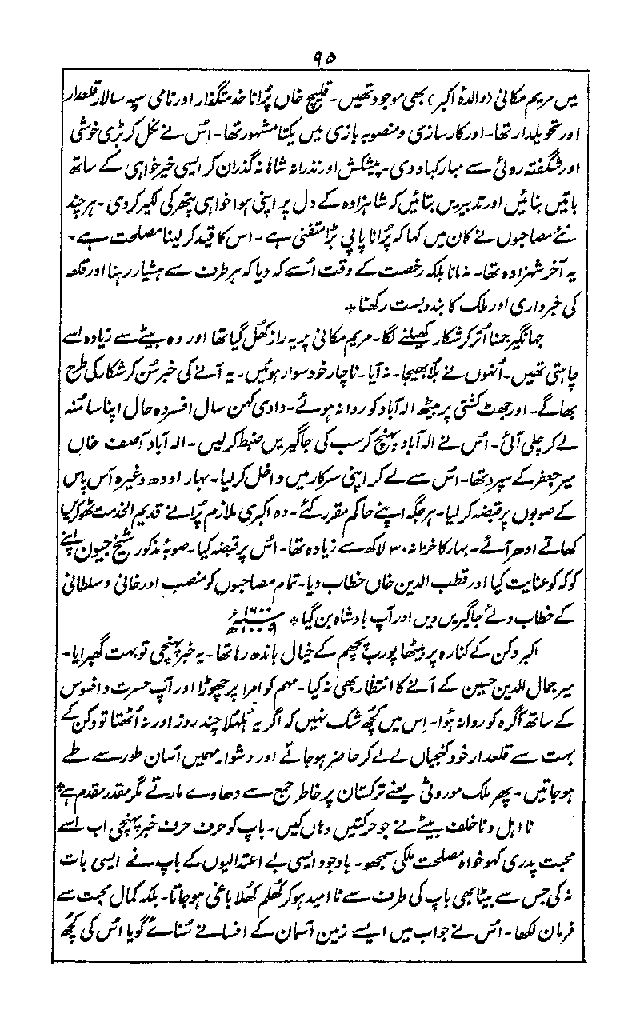 ۹۵
میں مریم مکانی (والدۂ اکبر) بھی موجود تھیں۔ قلیچ خاں پُرانا خدمتگذار اور نامی سپہ سالار قلعدار
اور تحویلدار تھا۔ اور کارسازی و منصوبہ بازی میں یکتا مشہور تھا۔ اُس نے نکل کر بڑی خوشی
اور شگفتہ روئی سے مبارکباد دی۔ پیشکش اور نذرانہ شاہانہ گذران کر ایسی خیر خواہی کے ساتھ
باتیں بنائیں اور تدبیریں بتائیں کہ شاہزادہ کے دل پر اپنی ہوا خواہی پتھر کی لکیر کر دی۔ ہر چند
نئے مصاحبوں نے کان میں کہا کہ پُرانا پاپی بڑا متفنی ہے۔ اس کا قید کر لینا مصلحت ہے۔
یہ آخر شہزادہ تھا۔ نہ مانا بلکہ رخصت کے وقت اُسے کہ دیا کہ ہر طرف سے ہشیار رہنا اور قلعہ
کی خبرداری اور ملک کا بندوبست رکھنا *
جہانگیر جمنا اُتر کر شکار کھیلنے لگا۔ مریم مکانی پر یہ راز کھل گیا تھا اور وہ بیٹے سے زیادہ اسے
چاہتی تھیں۔ اُنھوں نے بُلا بھیجا۔ نہ آیا۔ ناچار خود سوار ہوئیں۔ یہ آنے کی خبر سُن کر شکار کی طرح
بھاگے۔ اور جھٹ کشتی پر بیٹھ الہ آباد کو روانہ ہوئے۔ دادی کہن سال افسردہ حال اپنا سا منہ
لے کر چلی آئی۔ اُس نے الہ آباد پہنچ کر سب کی جاگیریں ضبط کر لیں۔ الہ آباد آصف خاں
میر جعفر کے سپرد تھا۔ اُس سے لے کر اپنی سرکار میں داخل کر لیا۔ بہار اودھ وغیرہ آس پاس
کے صوبوں پر قبضہ کر لیا۔ ہر جگہ اپنے حاکم مقرر کئے۔ وہ اکبری ملازم پُرانے قدیم الخدمت ٹھوکریں
کھاتے ادھر آئے۔ بہار کا خزانہ ۳۰ لاکھ سے زیادہ تھا۔ اُس پر قبضہ کیا۔ صوبہ مذکور شیخ جیون اپنے
کوکہ کو عنایت کیا اور قطب الدین خاں خطاب دیا۔ تمام مصاحبوں کو منصب اور خانی و سلطانی
کے خطاب دئے جاگیریں دیں اور آپ بادشاہ بن گیا *
اکبر دکن کے کنارہ پر بیٹھا پورب پچھم کے خیال باندھ رہا تھا۔ یہ خبر پہنچی تو بہت گھبرایا۔
میر جمال الدین حسین کے آنے کا انتظار بھی نہ کیا۔ مہم کو امرا پر چھوڑا اور آپ حسرت و افسوس
کے ساتھ آگرہ کو روانہ ہؤا۔ اِس میں کچھ شک نہیں کہ اگر یہ ہلہلا چند روز اور نہ اُٹھتا تو دکن کے
بہت سے قلعدار خود کنجیاں لے لے کر حاضر ہو جاتے اور دشوار مہمیں آسان طور سے طے
ہو جاتیں۔ پھر ملک موروثی یعنے ترکستان پر خاطر جمع سے دھاوے مارتے مگر مقدر مقدم ہے *
نا اہل و ناخلف بیٹے نے جو حرکتیں وہاں کیں۔ باپ کو حرف حرف خبر پہنچی اب اسے
محبت پدری کہو خواہ مصلحت ملکی سمجھو۔ باوجود ایسی بے اعتدالیوں کے باپ نے ایسی بات
نہ کی جس سے بیٹا بھی باپ کی طرف سے نا امید ہو کر کُھلم کُھلا باغی ہو جاتا۔ بلکہ کمال محبت سے
فرمان لکھا۔ اُس نے جواب میں ایسے زمین آسمان کے افسانے سُنائے گویا اُس کی کچھ